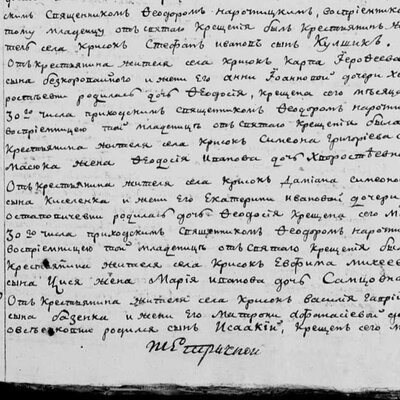 скимъ Священникомъ Ѳеодоромъ нароттцкимъ, воспріемнико
тому младенцу отъ святаго Крещенія былъ Крестьянинъ ж
тель села Крисокъ Стефанъ ивановъ сынъ Кулшикъ.
Отъ Крестьянина жителя села крисокъ Карпа Іероѳеева
сына безкоровайного и жени Его Анни Іоанновой дочери х
ростѣевни родилась дочь Ѳеодосія, крещена сего мѣсяца
30го числа приходскимъ священникомъ Ѳеодоромъ нароттц
воспріемницею той младенцу отъ святаго Крещенія была
Крестьянина жителя села Крисокъ Симеона Григоріева с
Масюка жена Ѳеодосія Иванова дочь Хворостѣвна
Отъ Крестьянина жителя села Крисокъ Даміана Симеоно
сына Киселенка и жени Его Екатерини ивановой дочери
остапочичевни родилась дочь Ѳеодосія Крещена сего м
30го числа Приходскимъ Священникомъ Ѳеодоромъ нарот
воспріемницею той младенцу отъ святаго Крещенія бы
Крестьянина Жителя села Крисокъ Евфима михеев
сына Цися Жена Марія иванова дочь Самцовна
Отъ Крестьянина жителя села Крисокъ василія гаврі
сына базенка и жени Его Матрони афанасіевой до
родился сынъ Исаакій, Крещенъ сего м